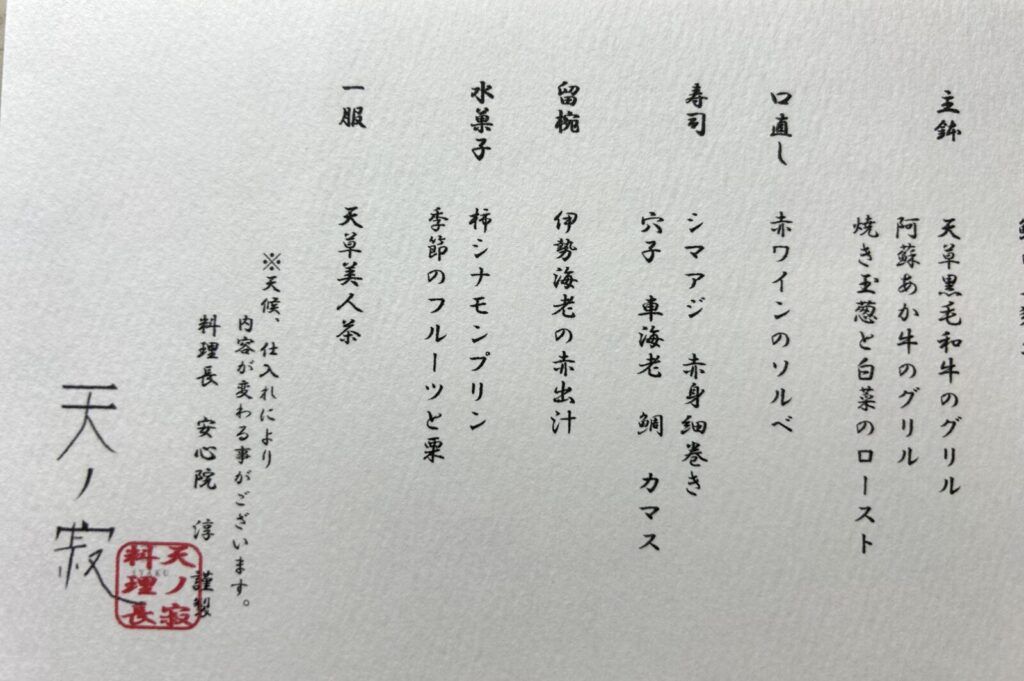 主鉢　天草黒毛和牛のグリル
阿蘇あか牛のグリル
焼き玉葱と白菜のロースト
口直し　赤ワインのソルベ
寿司　シマアジ　赤身細巻き
穴子　車海老　鯛　カマス
留椀　伊勢海老の赤出汁
水菓子　柿シナモンプリン
季節のフルーツと栗
一服　天草美人茶
※天候、仕入れにより
内容が変わる事がございます。
料理長　安心院　淳　謹製
天ノ寂
天ノ寂
料理長